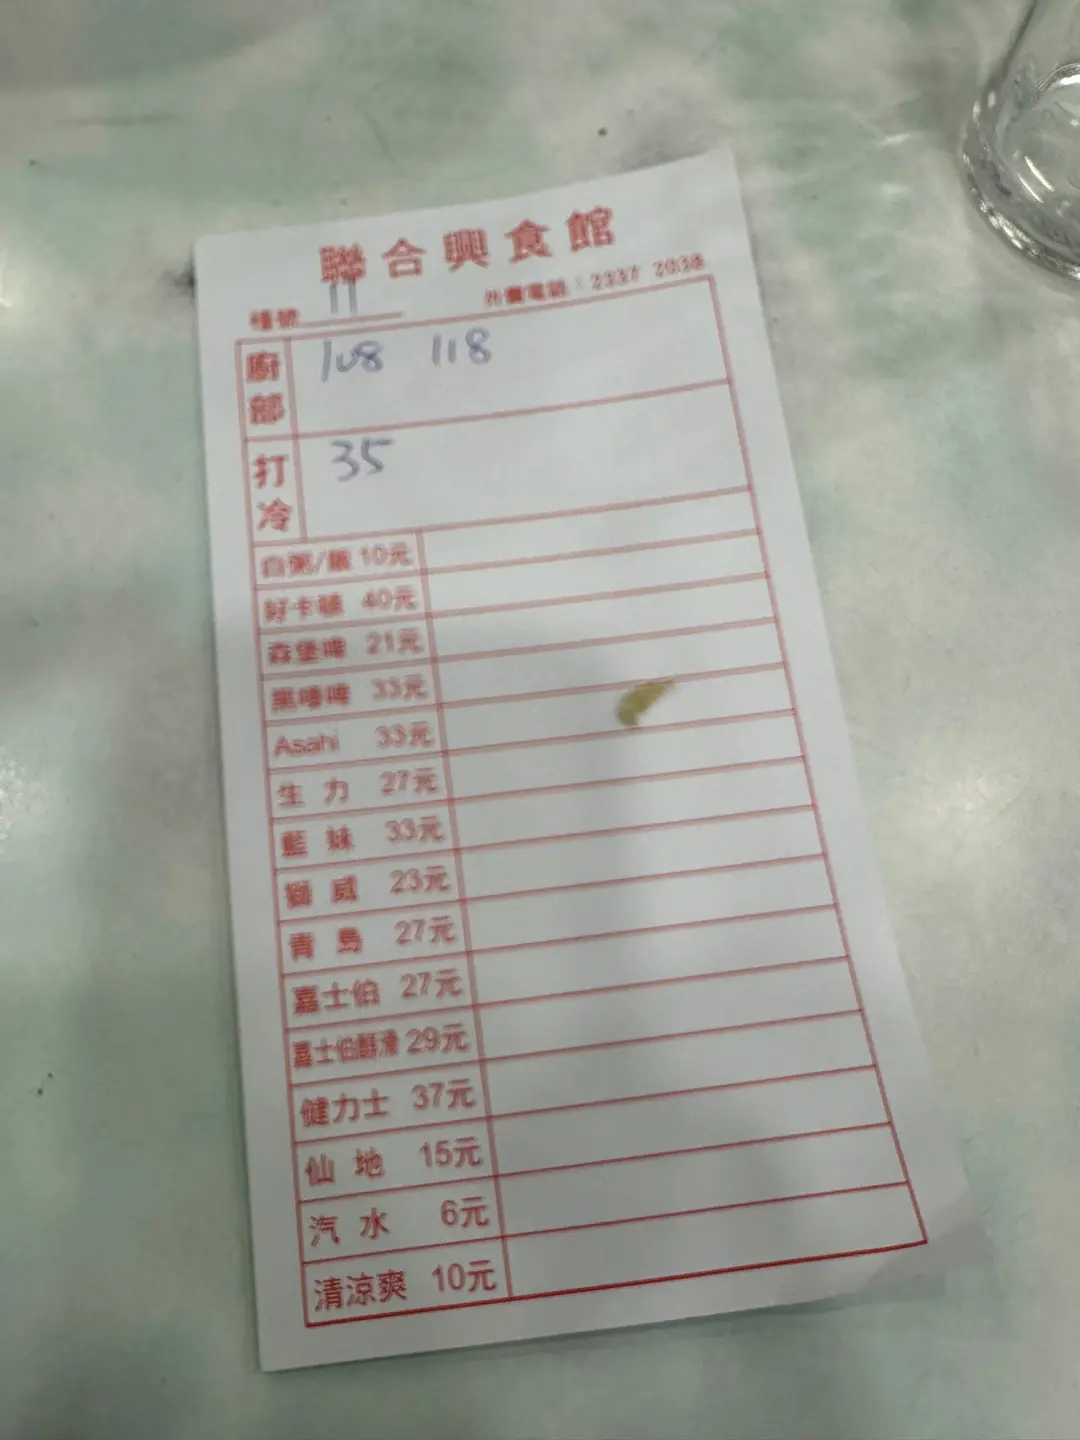 聯合興食館
檯號 11 外賣電話：2337 2038
廚部 108 118
打冷 35
白粥/飯 10元
好卡 40元
森堡啤 21元
黑啤 33元
Asahi 33元
生力 27元
藍妹 33元
獅威 23元
青島 27元
嘉士伯 27元
嘉士伯 滑 29元
健力士 37元
仙地 15元
汽水 6元
清涼爽 10元